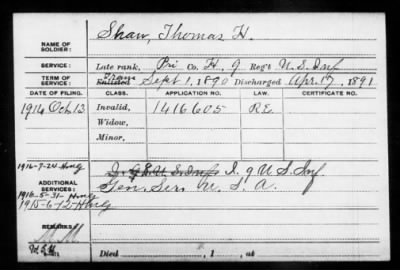 NAME OF SOLDIER: Shaw, Thomas H.
SERVICE: Late rank, Pri Co. H, 9 Reg't U.S. Inf
TERM OF SERVICE: Enlisted Sept 1, 1890 Discharged Apr. 17, 1891
DATE OF FILING. CLASS. APPLICATION NO. LAW. CERTIFICATE NO.
1914 Oct. 13 Invalid, 1416605 R.E.
Widow,
Minor,
1916-7-24- I. 9 U.S. Inf I. 9 U.S. Inf.
ADDITIONAL SERVICES: Gen. Serv. U.S.A.
1916-5-31-
1915-6-12-
REMARKS:
Died , 1 , at